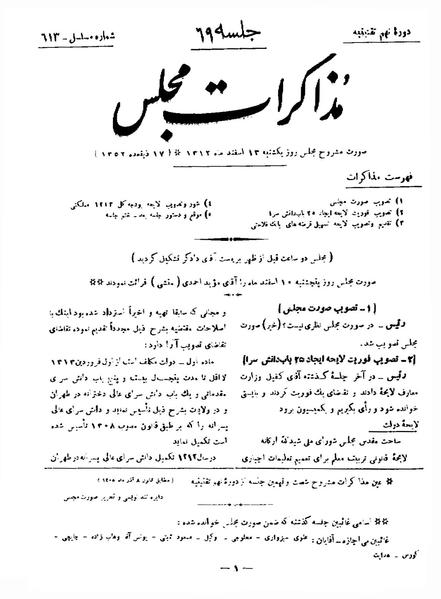 دورهٔ نهم تقنینیه
جلسه ۶۹
شماره مسلسل - ۶۱۳
مذاکرات مجلس
صورت مشروح مجلس روز یکشنبه ۱۳ اسفند ماه ۱۳۱۲ * (۱۷ ذیقعده ۱۳۵۲)
فهرست مذاکرات
۱) تصویب صورت مجلس
۲) تصویب فوریت لایحه ایجاد ۲۵ باب دانش سرا
۳) تقدیم و تصویب لایحه تسهیل قرضه های بانک فلاحتی
۴) شور و تصویب لایحه بودجه کل ۱۳۱۳ مملکتی
۵) موقع و دستور جلسه بعد - ختم جلسه
(مجلس دو ساعت قبل از ظهر بریاست آقای دادگر تشکیل گردید)
صورت مجلس روز پنجشنبه ۱۰ اسفند ماه را آقای مؤید احمدی (منشی) قرائت نمودند **
[۱- تصویب صورت مجلس]
رئیس - در صورت مجلس نظری نیست؟ (خیر) صورت
مجلس تصویب شد.
[۲- تصویب فوریت لایحه ایجاد ۲۵ باب دانش سرا]
رئیس - در آخر جلسهٔ گذشته آقای کفیل وزارت
معارف لایحهٔ دادند و تقاضای یک فوریت کردند و بایستی
خوانده شود و رأی بگیریم و بکمیسیون برود
لایحهٔ دولت
ساحت مقدس مجلس شورای ملی شیدالله ارکانه
لایحهٔ قانونی تربیت معلم برای تعمیم تعلیمات اجباری
و مجانی که سابقا تهیه و اخیراً استرداد شده بود اینک با
اصلاحات مقتضیه بشرح ذیل مجدداً تقدیم نموده تقاضای
تصویب آنرا دارد:
ماده اول - دولت مکلف است از اول فروردین ۱۳۱۳
لااقل تا مدت پنجسال بیست و پنج باب دانش سرای
مقدماتی و یک باب دانش سرای عالی دخترانه در طهران
و در ولایات بشرح ذیل تأسیس نماید و دانش سرای عالی
پسرانه را که بر طبق قانون مصوب ۱۳۰۸ تأسیس شده
است تکمیل نماید
در سال ۱۳۱۳ تکمیل دانش سرای عالی پسرانه در طهران
* عین مذاکرات مشروح شصت و نهمین جلسه از دورهٔ نهم تقنینیه
(مطابق قانون ۸ آذر ماه ۱۳۰۵)
دایره تند نویسی و تحریر صورت مجلس
** اسامی غائبین جلسه گذشته که ضمن صورت مجلس خوانده شده:
غائبین بی اجازه - آقایان: علوی سبزواری - معصومی - وکیل - مسعود ثابتی - یونس آقا وهاب زاده - چایچی -
کورس - هدایت
- ۱ -